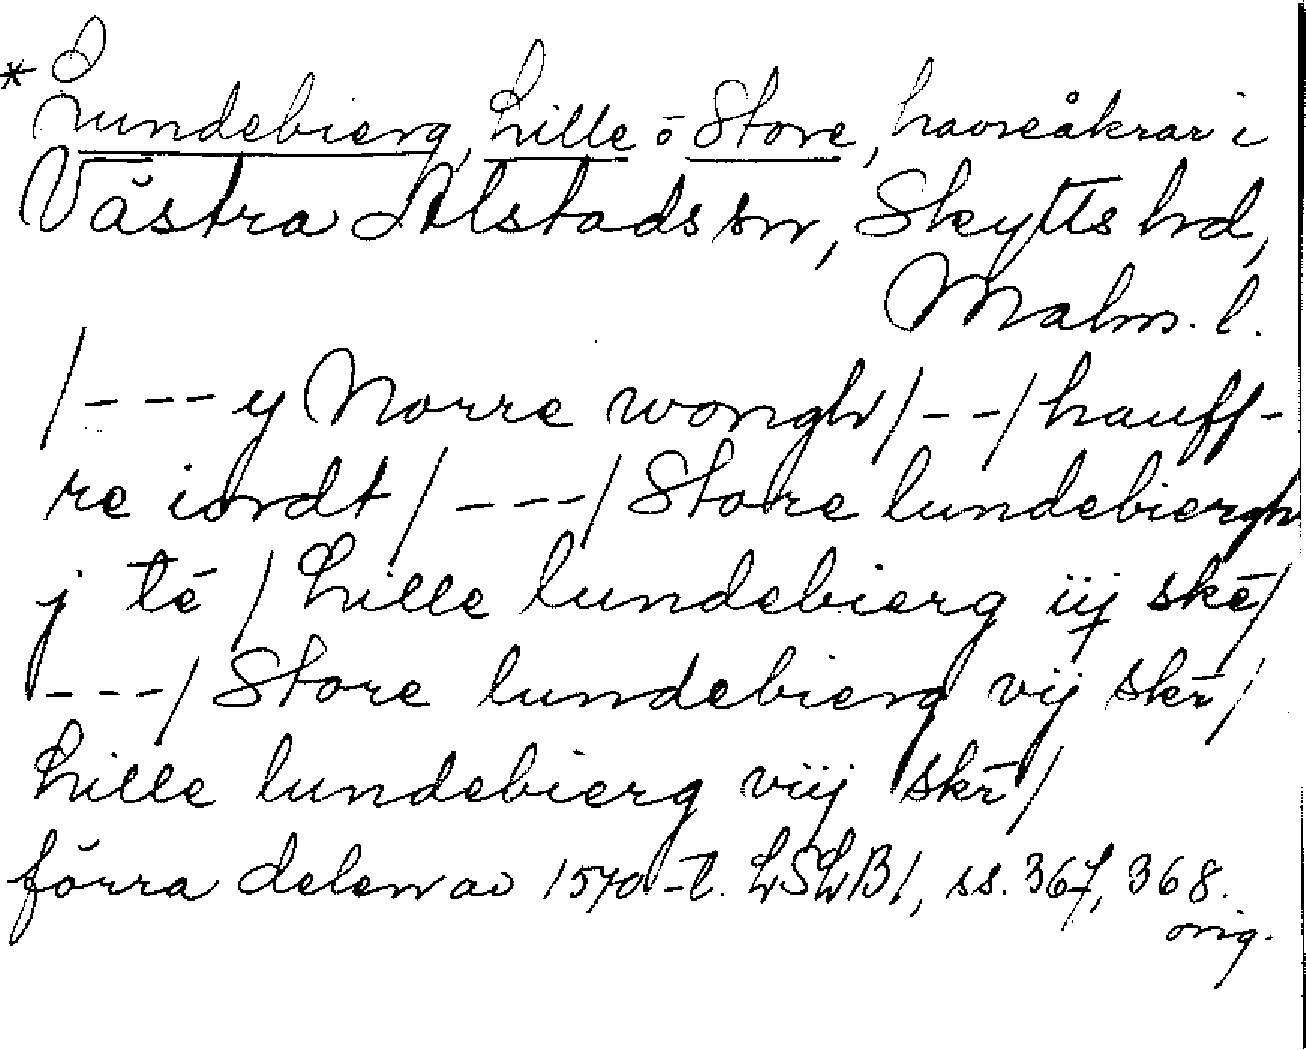 * Lundebierg, Lille o Store, havreåkrar i
Västra Alstads sn, Skytts hd,
Malm. l.
/---y Norre wongh/--/hauff-
re iordt/---/Store lundebiergh
j tē/Lille lundebierg iij skē/
---/Store lundebierg vij skr̄/
Lille lundebierg viij skr̄/
förra delen av 1570-t. LSLB1, ss. 367, 368.
orig.